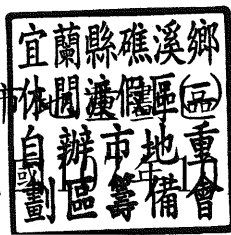 宜蘭縣礁溪鄉
休閒渡假區
自辦市地重
劃區籌備會